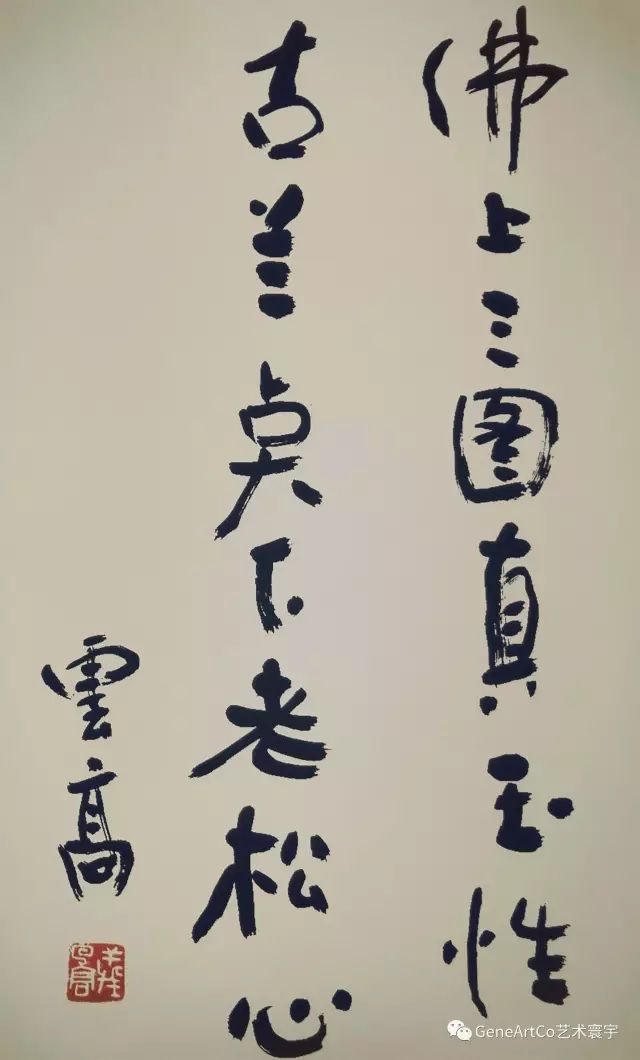 佛上三图真玉性
古兰点下老松心
雲高
GeneArtCo艺术寰宇